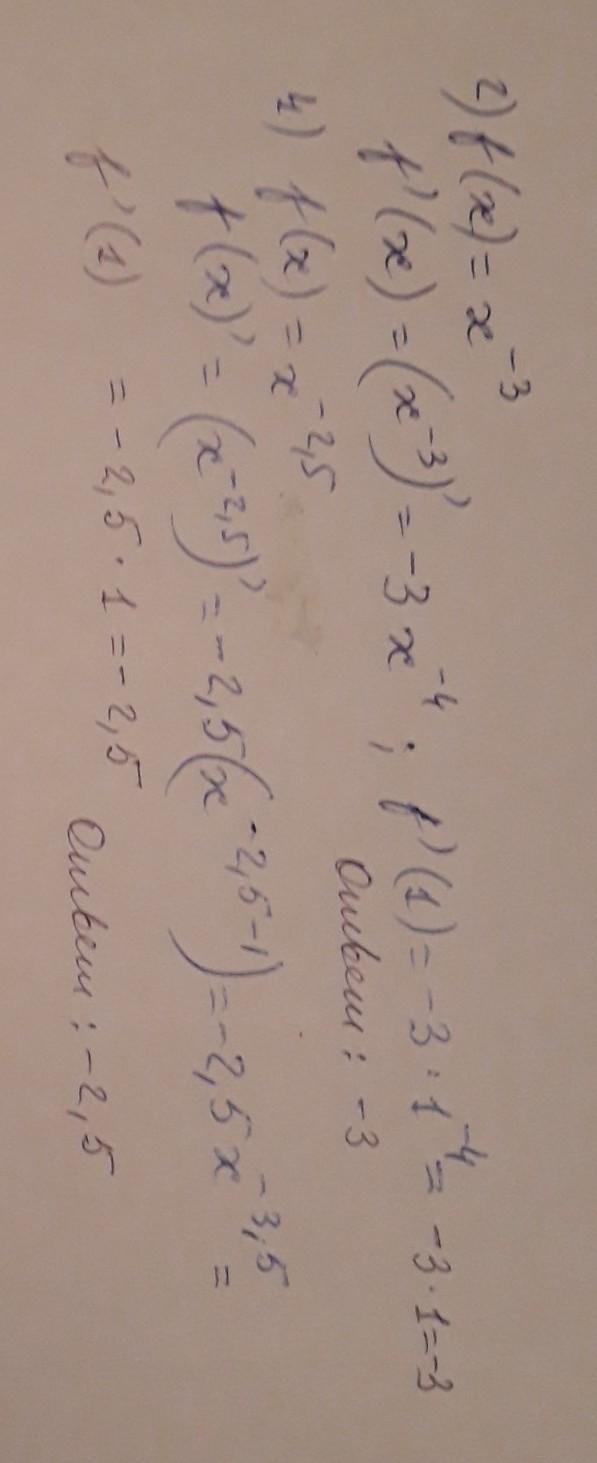 2) f(x) = x^-3
f'(x) = (x^-3)' = -3x^-4 ; f'(1) = -3·1^-4 = -3·1=-3
Ответ: -3
4) f(x) = x^-2,5
f(x)' = (x^-2,5)' = -2,5(x^-2,5-1) = -2,5x^-3,5 =
f'(1) = -2,5·1=-2,5 Ответ: -2,5